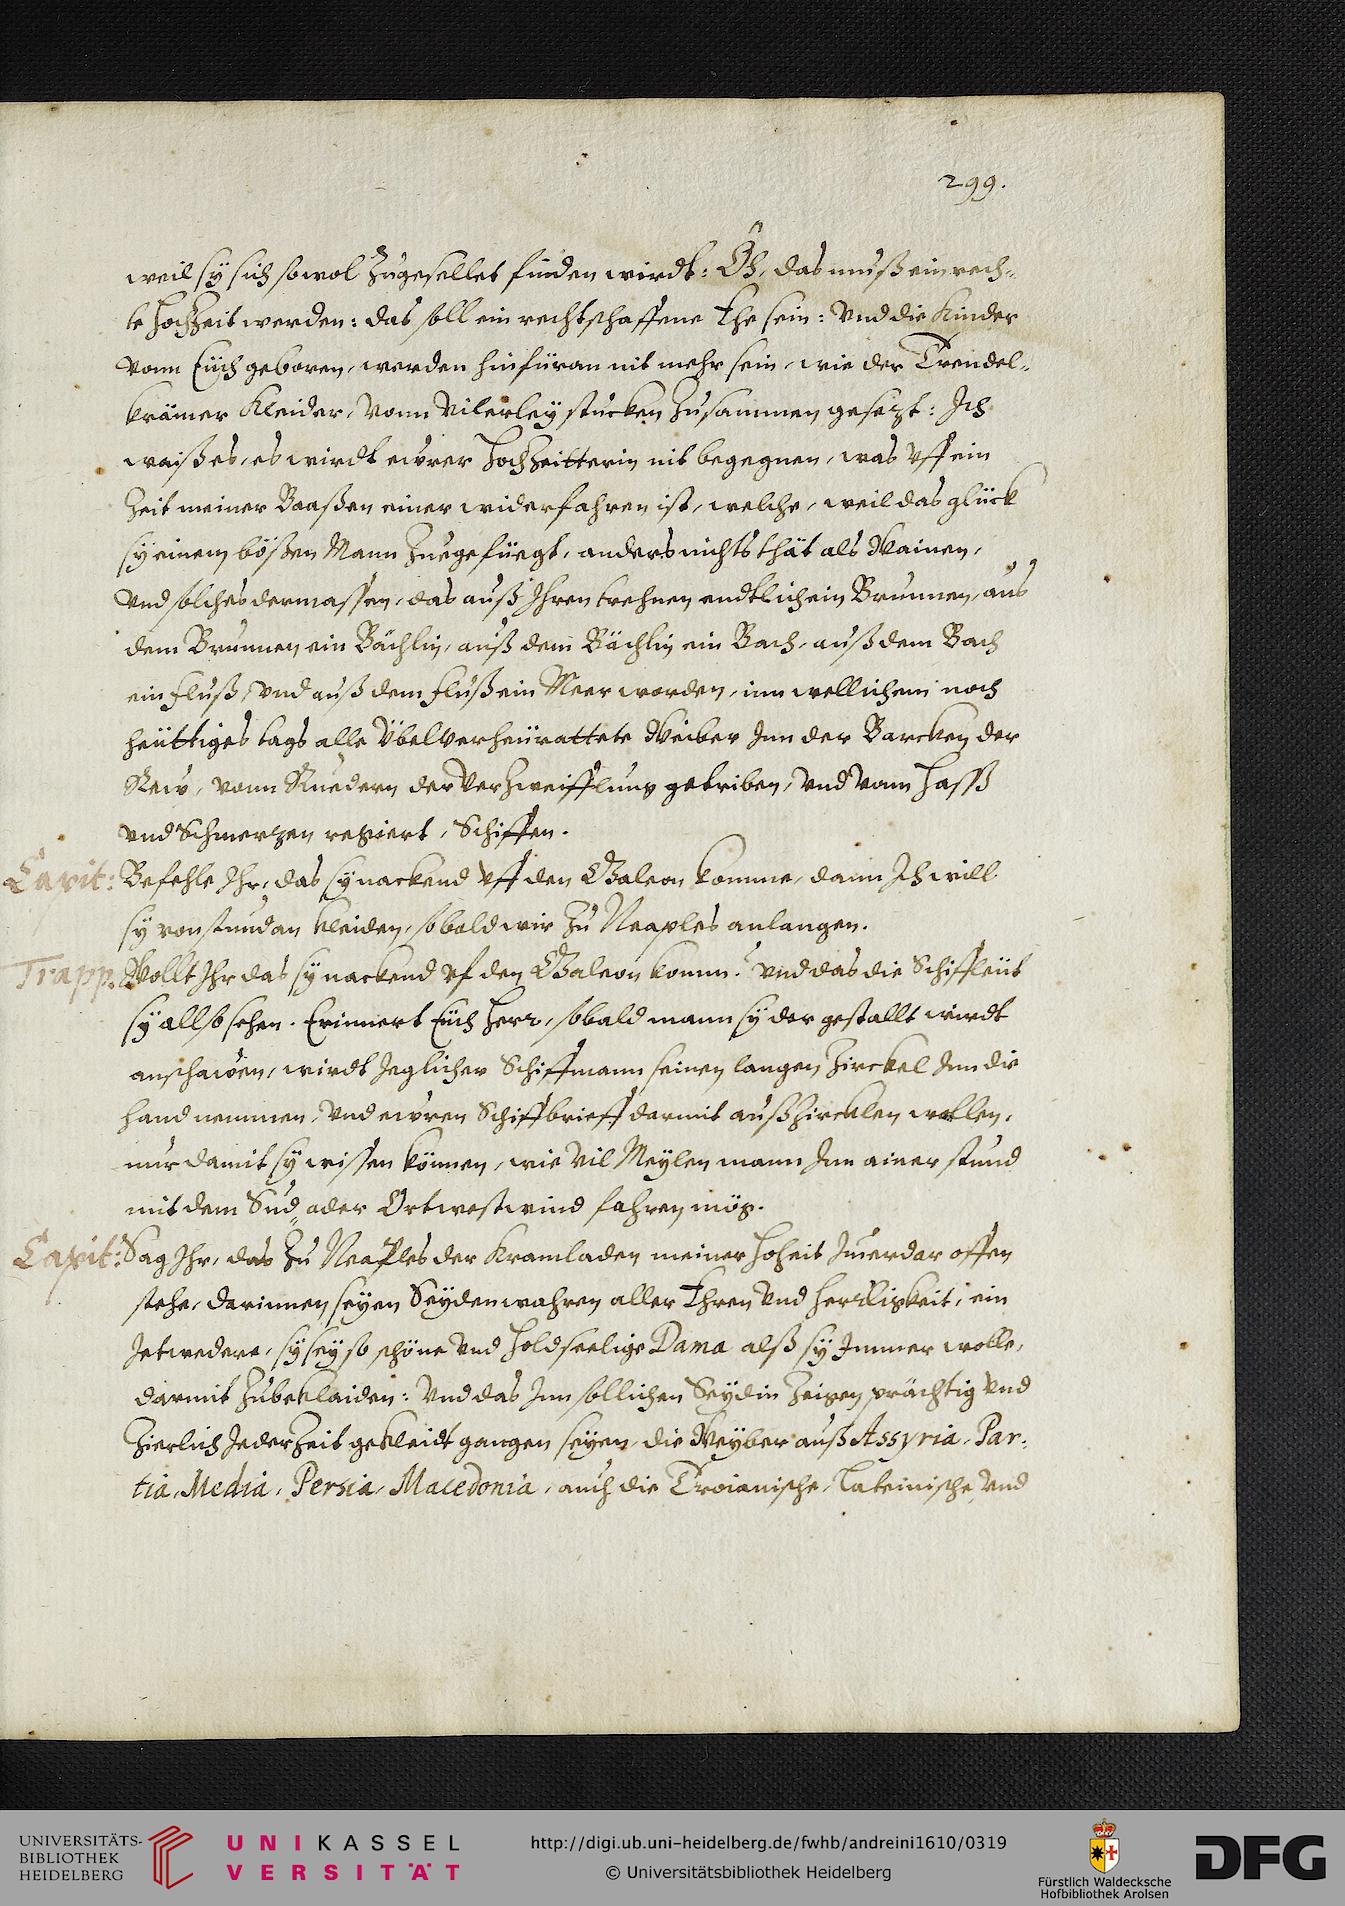 299.
weil sÿ sich sowol Zugesellet finden wirdt: Öh, das muß ein rech-
te Hochzeit werden: das soll ein rechtschaffene Ehe sein: Vnd die Kinder
vonn Eüch geboren, werden hinfüran nit mehr sein, wie der Trendel-
krämer Kleider, Vonn Vilerleÿ stucken Zusammen gesezt: Ich
waiß es, es wirdt ewrer Hochzeitterin nit begegnen, was Vff ein
Zeit meiner Baaßen einer widerfahren ist, welche, weil das glück
sÿ einem bößen Mann Zuegefüegt, anders nichts thät als Wainen,
Vnd solches dermassen, das auß Ihren trehnen endtlich ein Brunnen, aus
dem Brunnen ein Bächlin, auß dem Bächlin ein Bach, auß dem Bach
ein Fluß, Vnd auß dem Fluß ein Meer worden, inn wellichem noch
heüttiges tags alle Übelverheürattete Weiber Inn der Barcken der
Rew, vonn Ruedern der Verzweifflung getriben, Vnd vom Hasß
Vnd Schmerzen regiert, Schiffen.
Capit: Befehle Ihr, das sÿ nackend Vff den Galeon komme, dann Ich will
sÿ von stund an kleiden, sobald wir Zu Neaples anlangen.
Trapp. Wollt Ihr das sÿ nackend Vf den Galeon komm? Vnd das die Schiffleüt
sÿ allso sehen. Erinnert Eüch Herr, sobald mann sÿ der gestallt wirdt
anschawen, wirdt Jeglicher Schiffmann seinen langen Zirckel Inn die
hand nemmen, Vnd ewren Schiffbrieff darmit außzircklen wollen,
nur damit sÿ wissen können, wie vil Meylen mann Inn ainer stund
mit dem Sud, oder Ortwestwind fahren mög.
Capit: Sag Ihr, das Zu Neaples der Kramladen meiner Hoheit Imerdar offen
stehe, darinnen seÿen Seÿdenwahren aller Ehren Vnd Herrligkeit, ein
Jetwedere, sÿ seÿ so schöne Vnd holdseelige Dama alß sÿ Immer wolle,
darmit Zubeklaiden: Vnd das Inn sollichen Seÿdin Zeigen prächtig Vnd
Zierlich Jederzeit gekleidt gangen seÿen, die Weÿber auß Assyria, Par-
tia, Media, Persia, Macedonia, auch die Troianische, Lateinische, Vnd
UNIVERSITÄTS-
BIBLIOTHEK
HEIDELBERG
UNIKASSEL
VERSITÄT
http://digi.ub.uni-heidelberg.de/fwhb/andreini1610/0319
© Universitätsbibliothek Heidelberg
Fürstlich Waldecksche
Hofbibliothek Arolsen
DFG